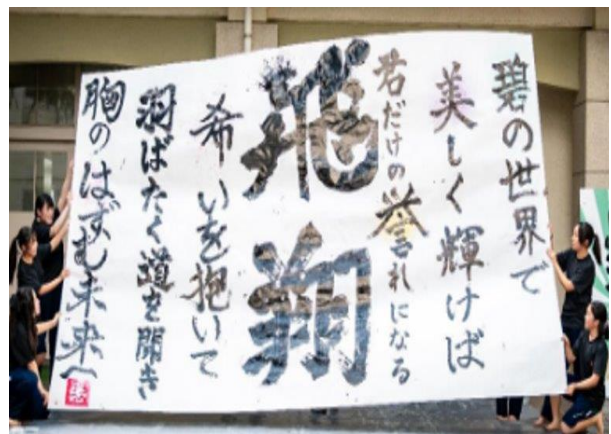 碧の世界で
美しく輝けば
君だけの誉れになる
飛翔
希いを抱いて
羽ばたく道を開き
胸のはずむ未来へ